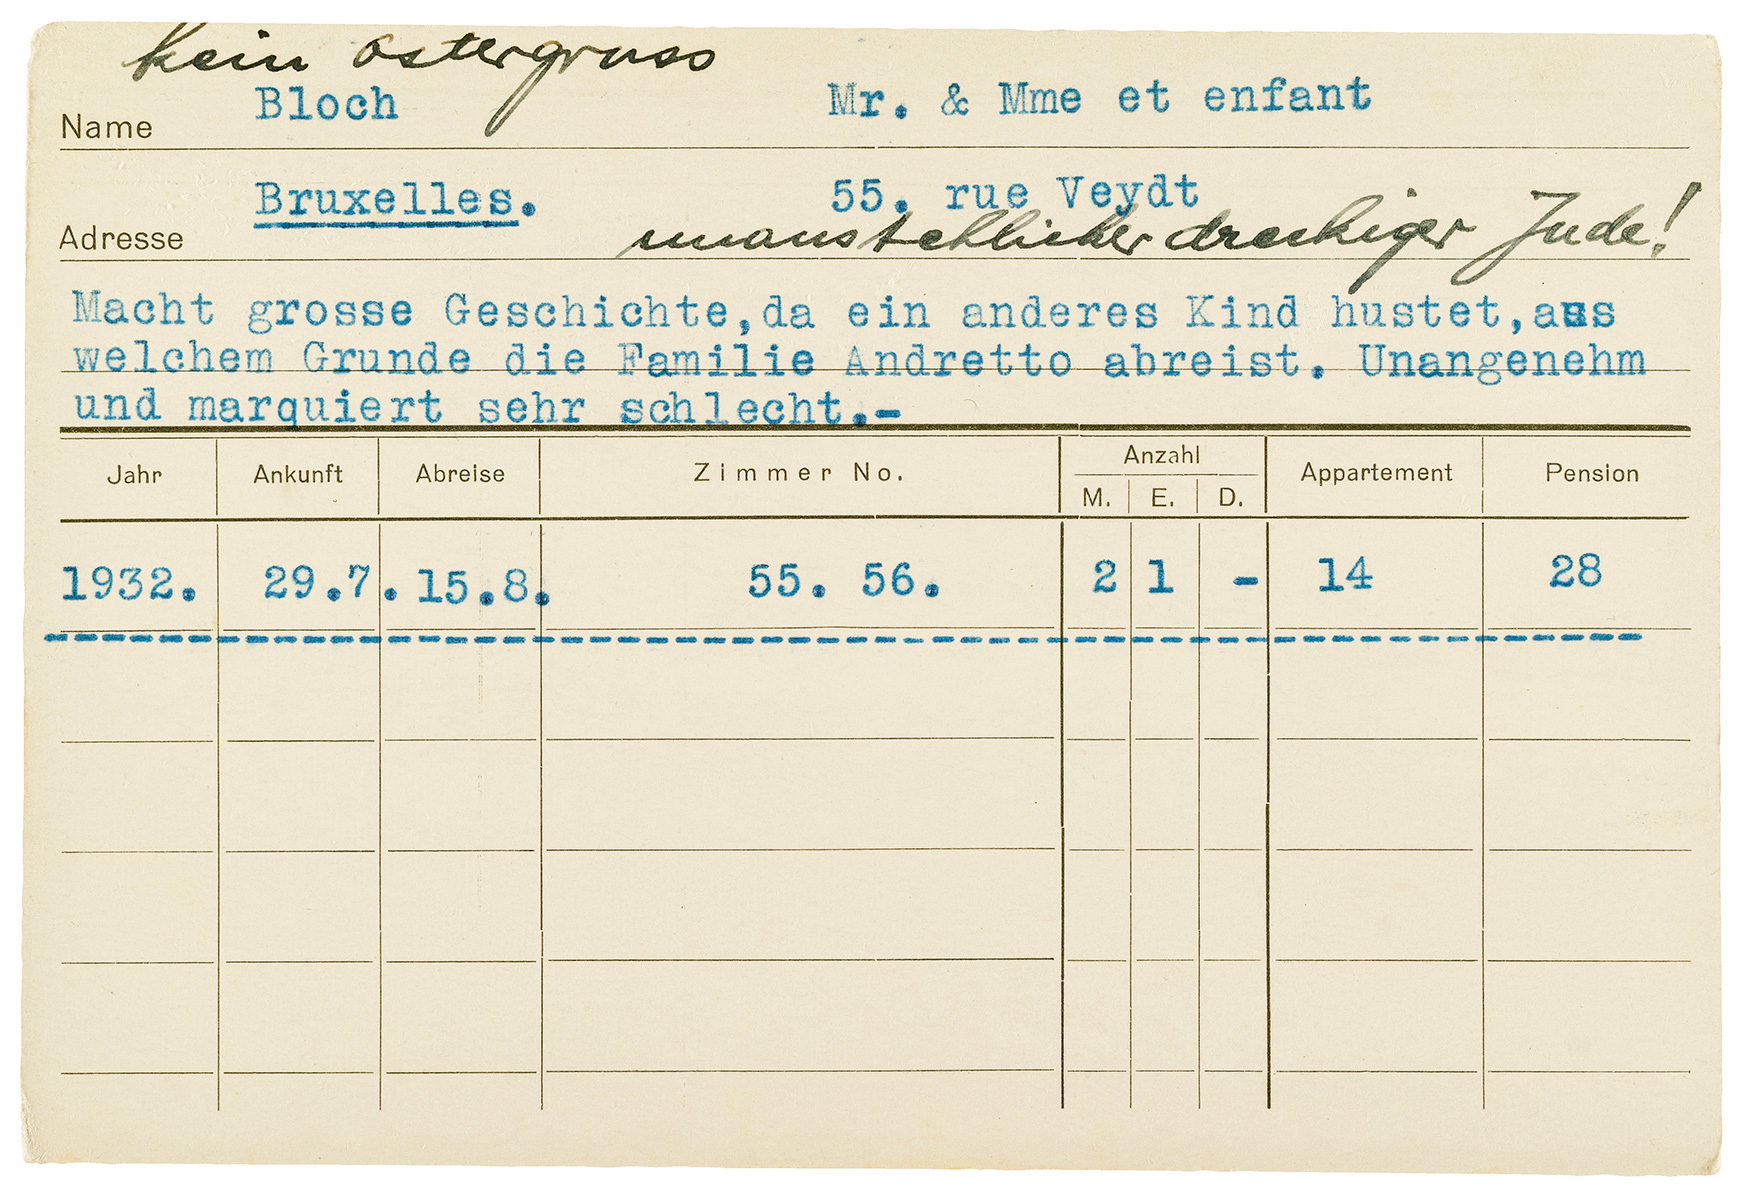 kein Ostergruss
Name Bloch Mr. & Mme et enfant
Bruxelles. 55. rue Veydt
Adresse unausstehlicher dreckiger Jude!
Macht grosse Geschichte,da ein anderes Kind hustet,aus
welchem Grunde die Familie Andretto abreist. Unangenehm
und marquiert sehr schlecht.-
Jahr Ankunft Abreise Zimmer No. Anzahl Appartement Pension
M. E. D.
1932. 29.7. 15.8. 55. 56. 2 1 - 14 28